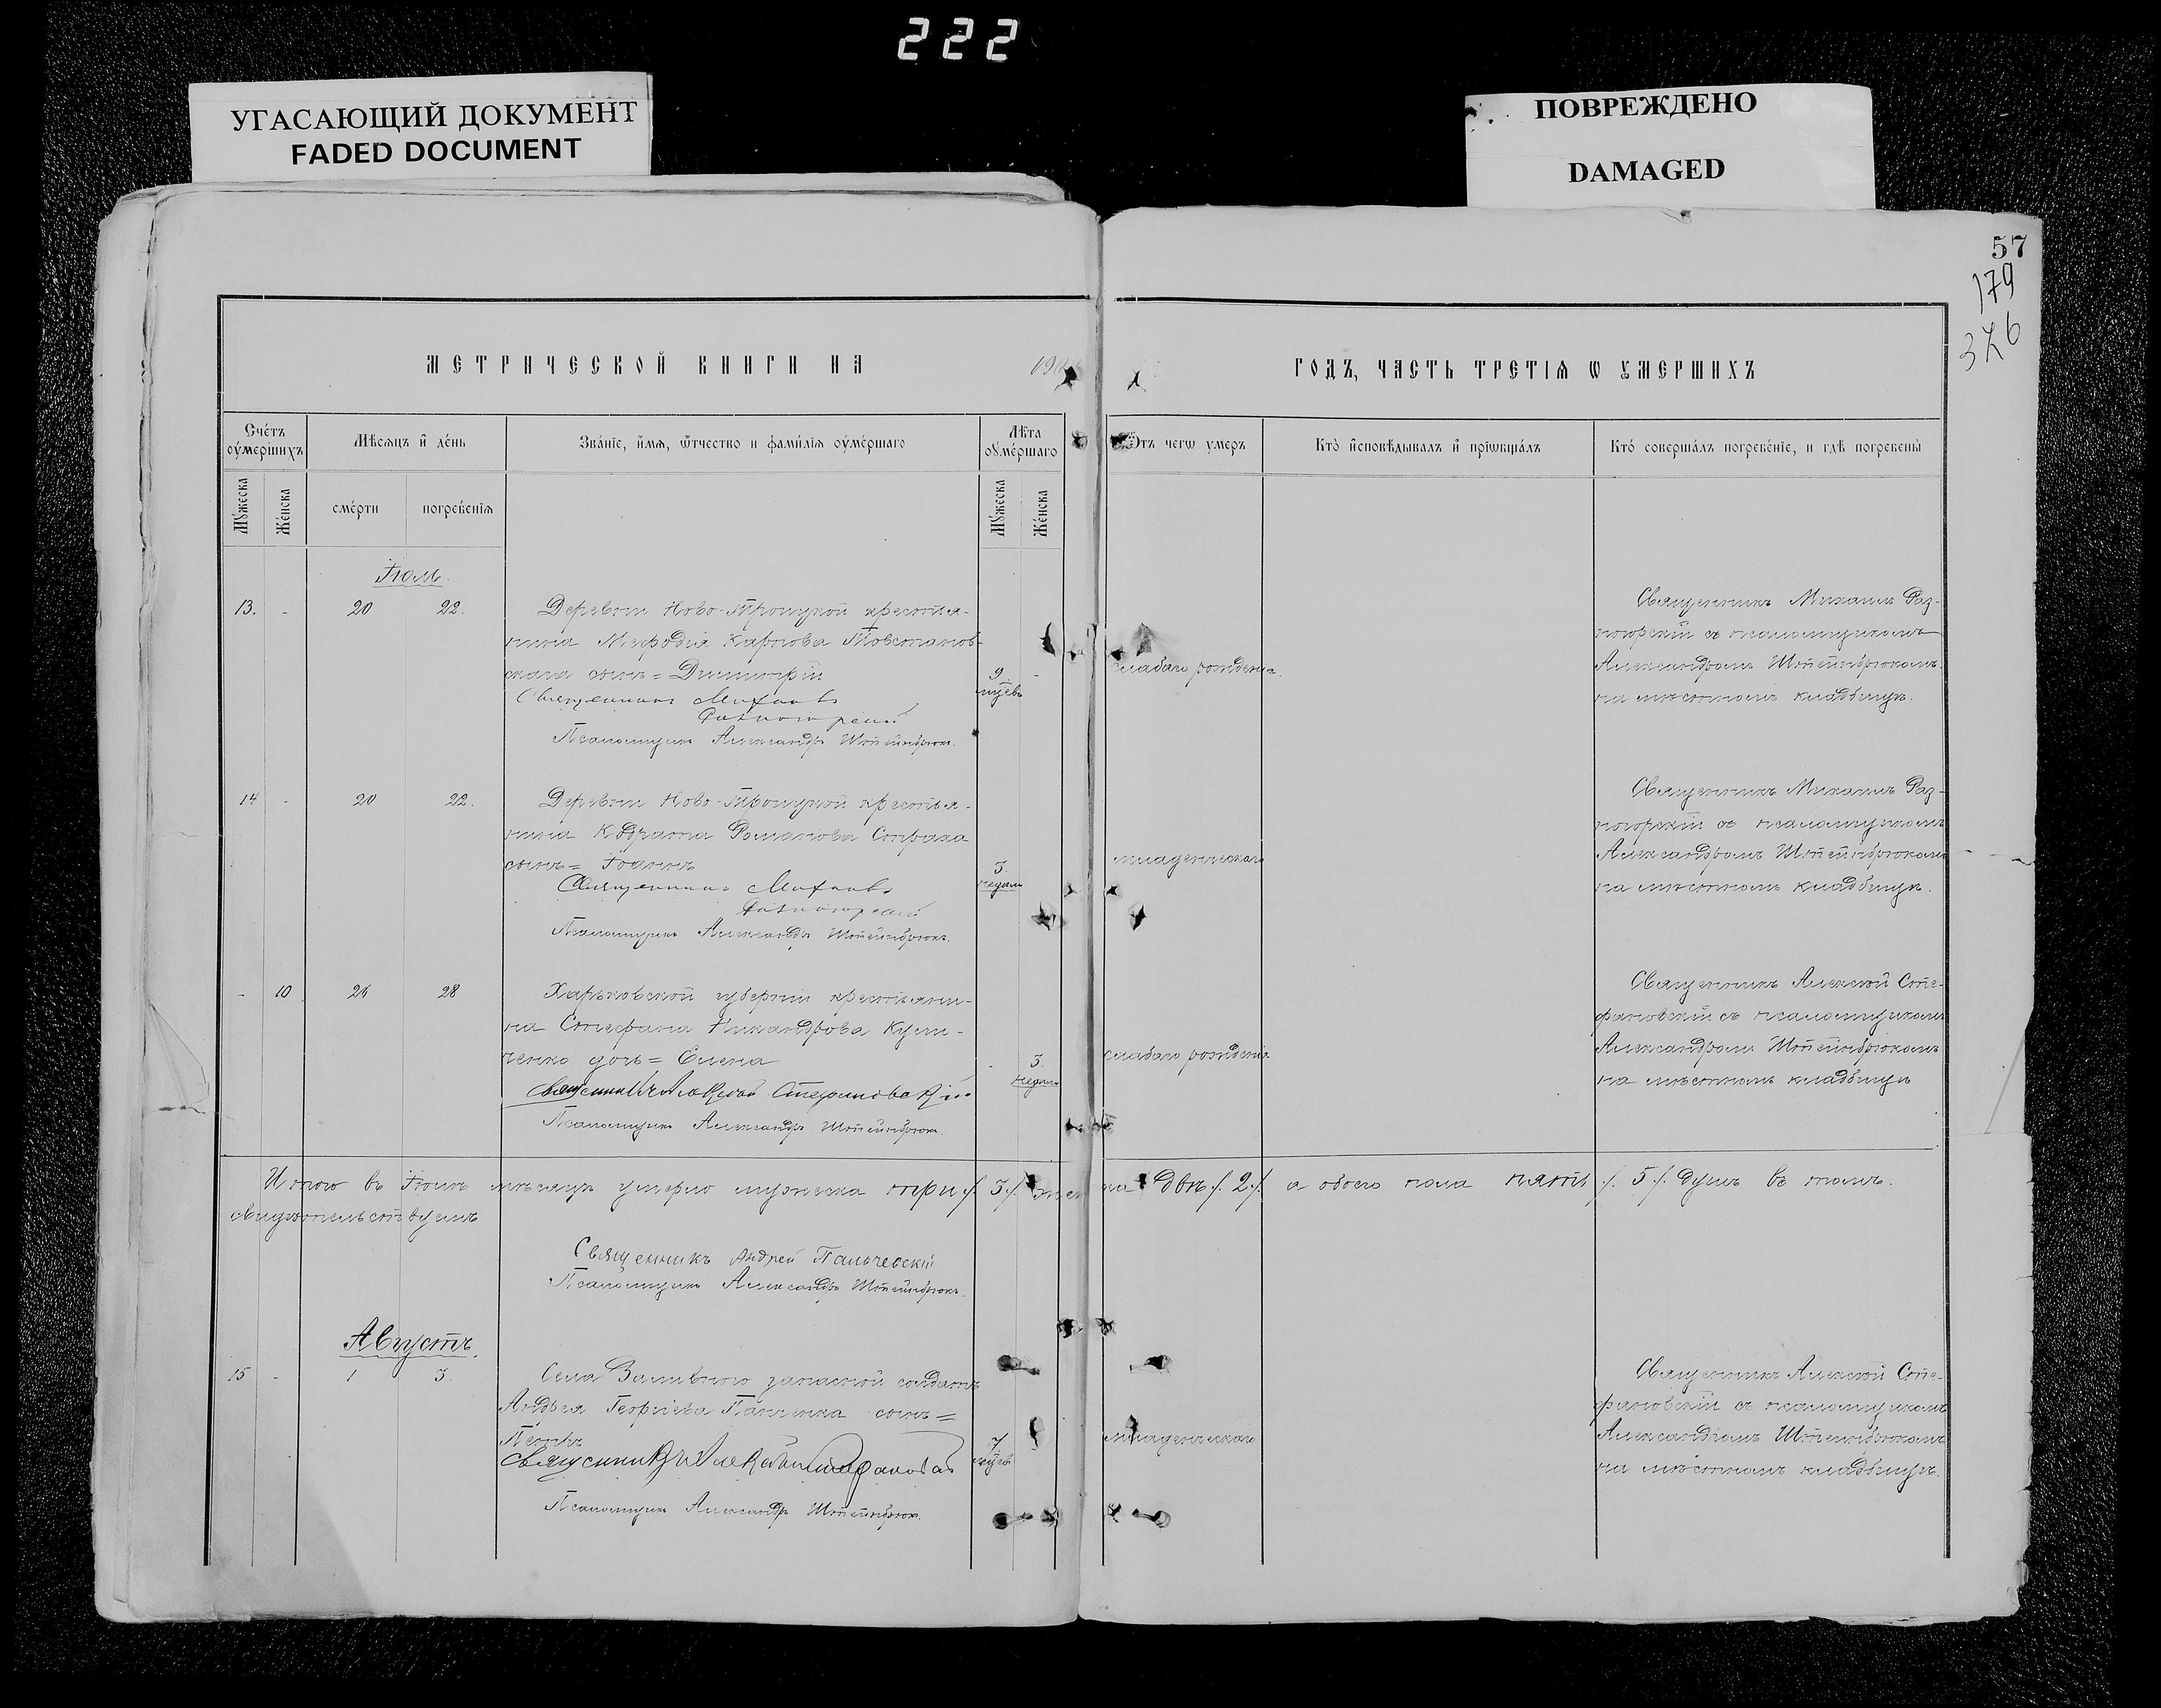 222
УГАСАЮЩИЙ ДОКУМЕНТ
FADED DOCUMENT
ПОВРЕЖДЕНО
DAMAGED
57
179
376
МЕТРИЧЕСКОЙ КНИГИ НА
ГОДЪ, ЧАСТЬ ТРЕТІѦ Ѡ ОУМЕРШИХЪ
Счетъ оумершихъ
Мѣсяцъ и день
Званіе, имя, ѿчество и фамилія оумершаго
Лѣта оумершаго
Ѿ чегѡ умеръ
Кто исповѣдывалъ и пріѡбщалъ
Кто совершалъ погребеніе, и гдѣ погребены
Мужеска
Женска
смерти
погребенія
Мужеска
Женска
Іюль.
13. - 20 22.
Деревни Ново-Троицкой крестья-
нина Меѳодія Карпова Товстанов-
скаго сынъ = Димитрій
Священникъ Михаилъ
Разногорскій
Псаломщикъ Александръ Штейнбрюкъ.
9 -
слабаго рожденія.
Священникъ Михаилъ Раз-
ногорскій съ псаломщикомъ
Александромъ Штейнбрюкомъ
на мѣстномъ кладбищѣ.
14 - 20 22.
Деревни Ново-Троицкой крестья-
нина Кодрата Романова Страха
сынъ = Іоаннъ
Священникъ Михаилъ
Разногорскій
Псаломщикъ Александръ Штейнбрюкъ.
3
недѣли
младенческаго
Священникъ Михаилъ Раз-
ногорскій съ псаломщикомъ
Александромъ Штейнбрюкомъ
на мѣстномъ кладбищѣ.
- 10 26 28
Харьковской губерніи крестьяни-
на Стефана Никандрова
дочь = Елена
Священникъ Алексѣй Стефановскій
Псаломщикъ Александръ Штейнбрюкъ.
- 3
недѣли
слабаго рожденія
Священникъ Алексѣй Сте-
фановскій съ псаломщикомъ
Александромъ Штейнбрюкомъ
на мѣстномъ кладбищѣ
Итого въ Іюлѣ мѣсяцѣ умерло мужеска три /. 3 /. двѣ /. 2 /. а обоего пола пять /. 5 /. душъ въ томъ.
свидѣтельствуемъ
Священникъ Андрей Пальчевскій
Псаломщикъ Александръ Штейнбрюкъ.
Августъ.
15 - 1 3.
Села Заливного запасной солдатъ
Андрея Георгіева Панченка сынъ =
Петръ
Священникъ Алексѣй Стефановскій
Псаломщикъ Александръ Штейнбрюкъ.
7
младенческаго
Священникъ Алексѣй Сте-
фановскій съ псаломщикомъ
Александромъ Штейнбрюкомъ
на мѣстномъ кладбищѣ.